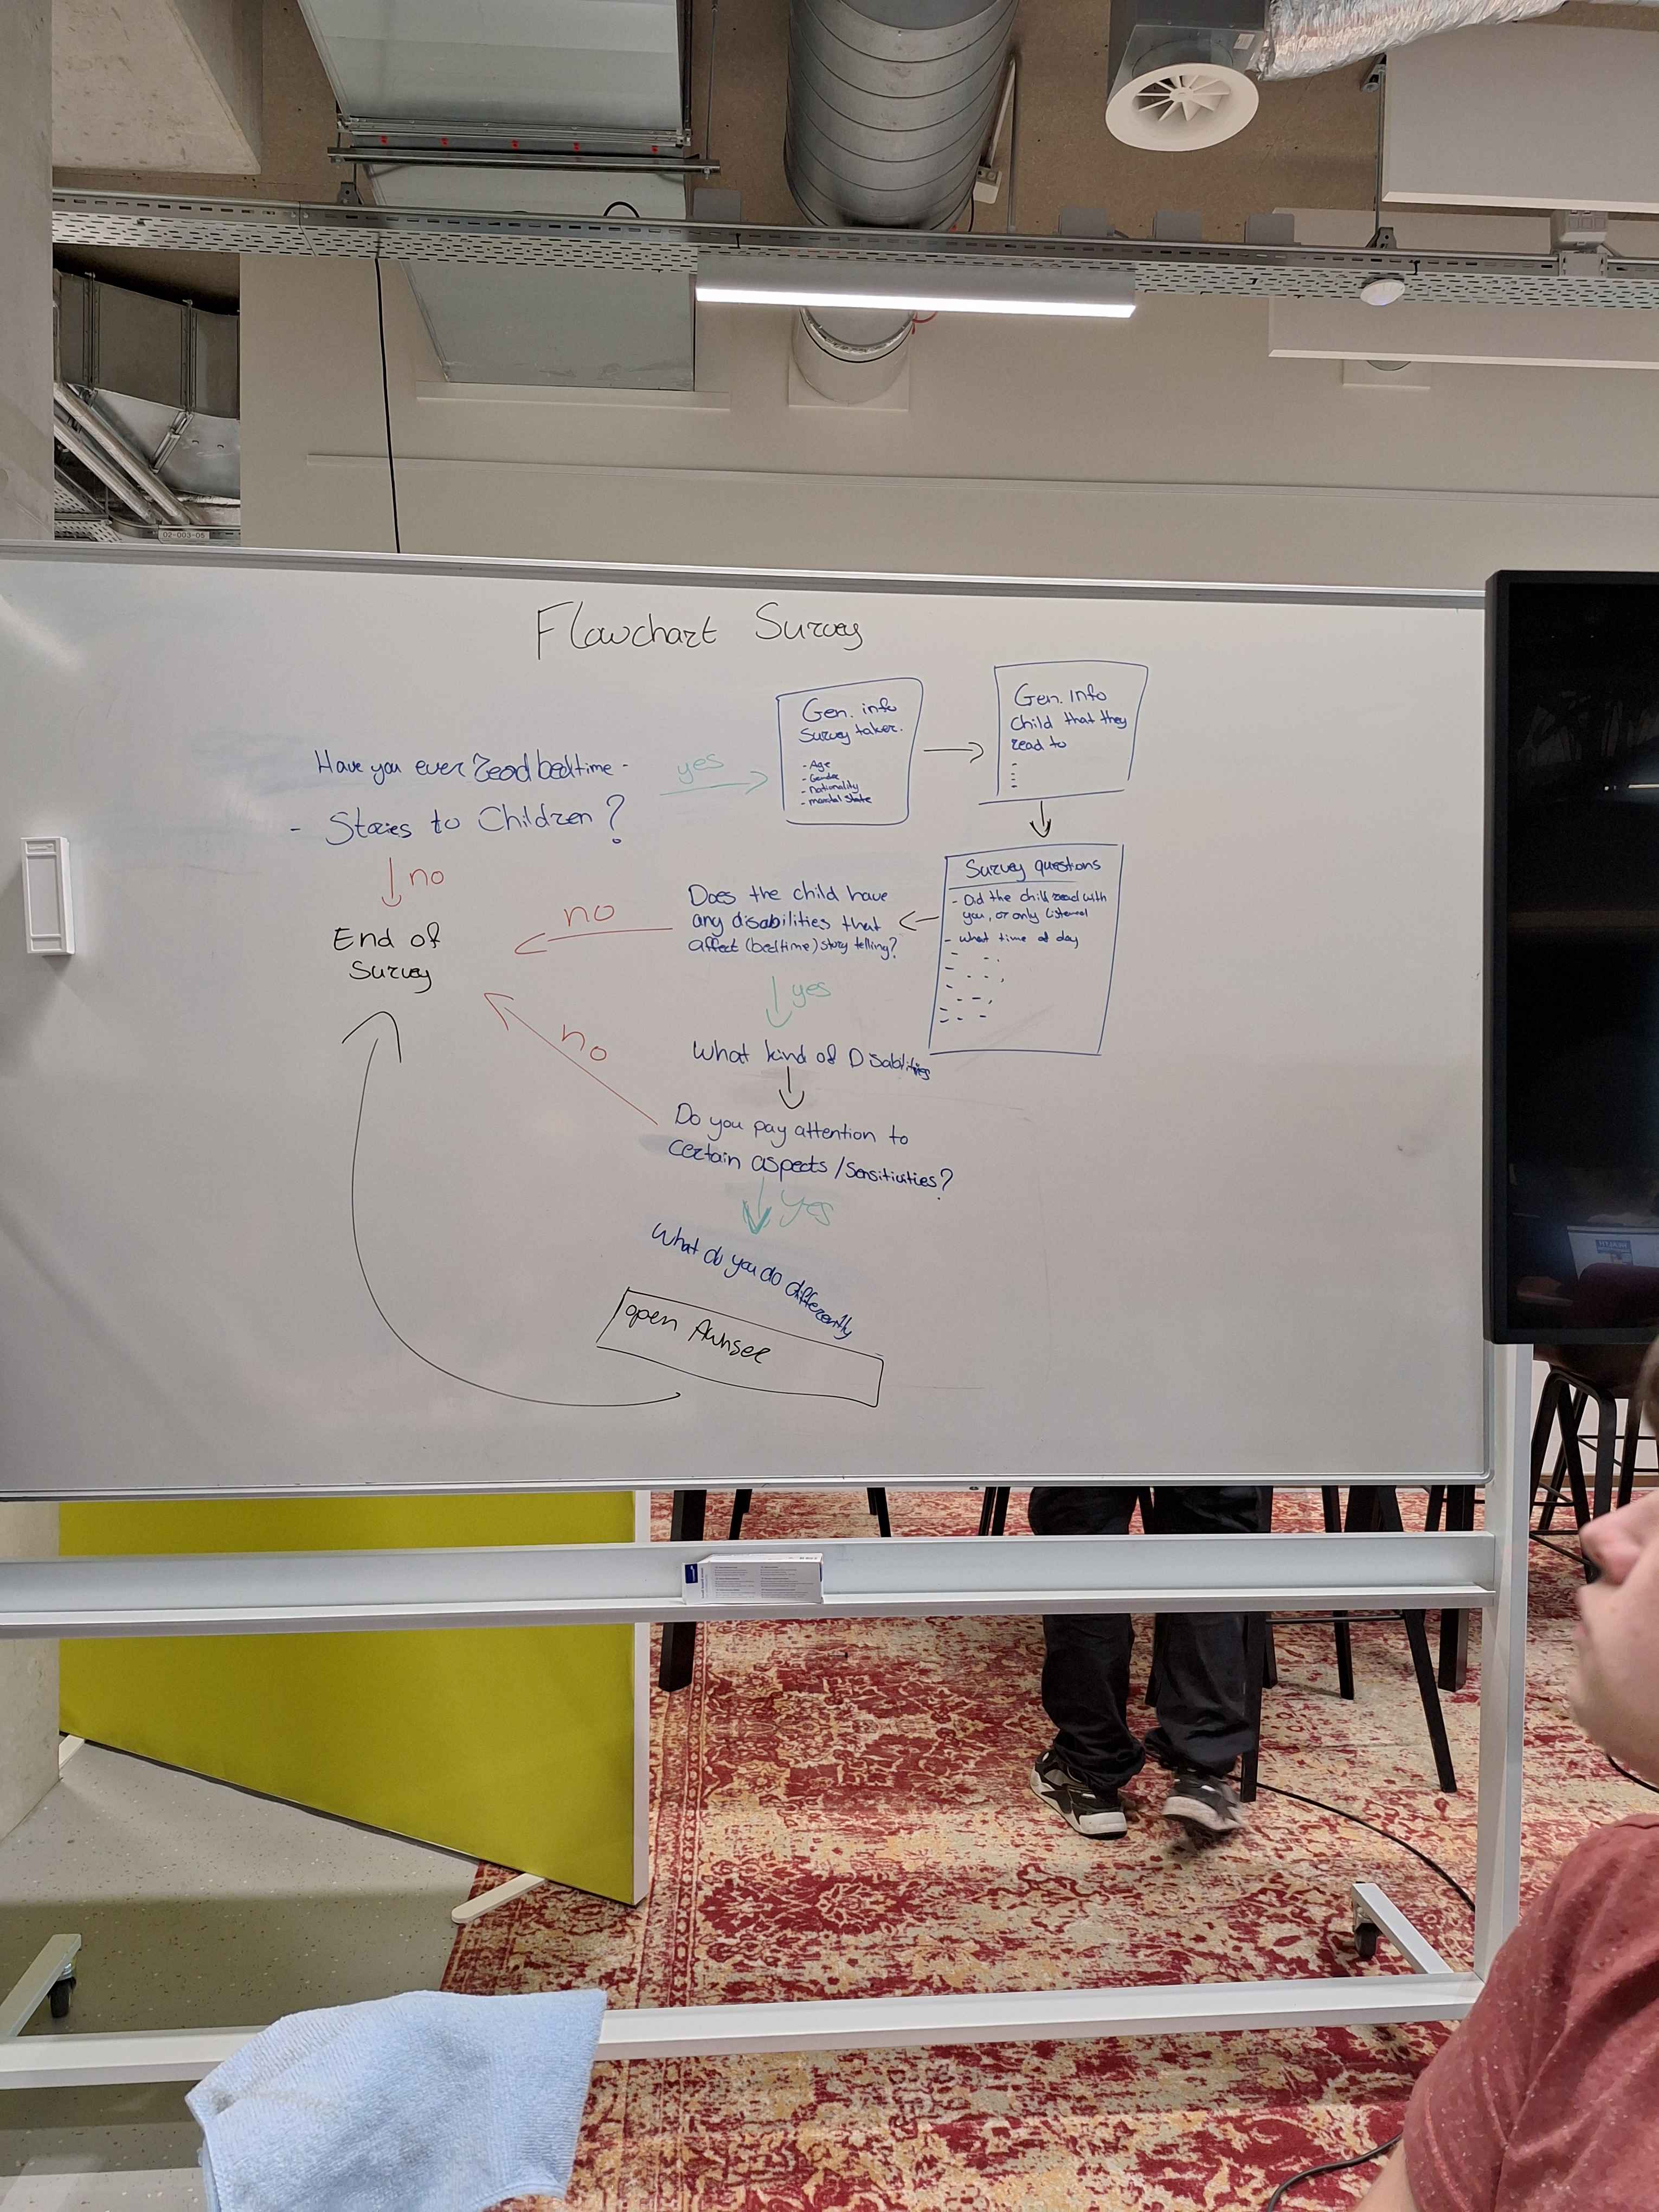 02-003-05
Flowchart Survey
Have you ever read bedtime -
- Stories to Children?
yes
Gen. info
Survey taker.
- Age
- Gender
- nationality
- marital state
Gen. info
Child that they
read to
Survey questions
- Did the child read with
you, or only listened
- what time of day
Does the child have
any disabilities that
affect (bedtime) story telling?
no
no
End of
Survey
yes
What kind of Disabilities
no
Do you pay attention to
certain aspects / Sensitivities?
yes
What do you do differently
open